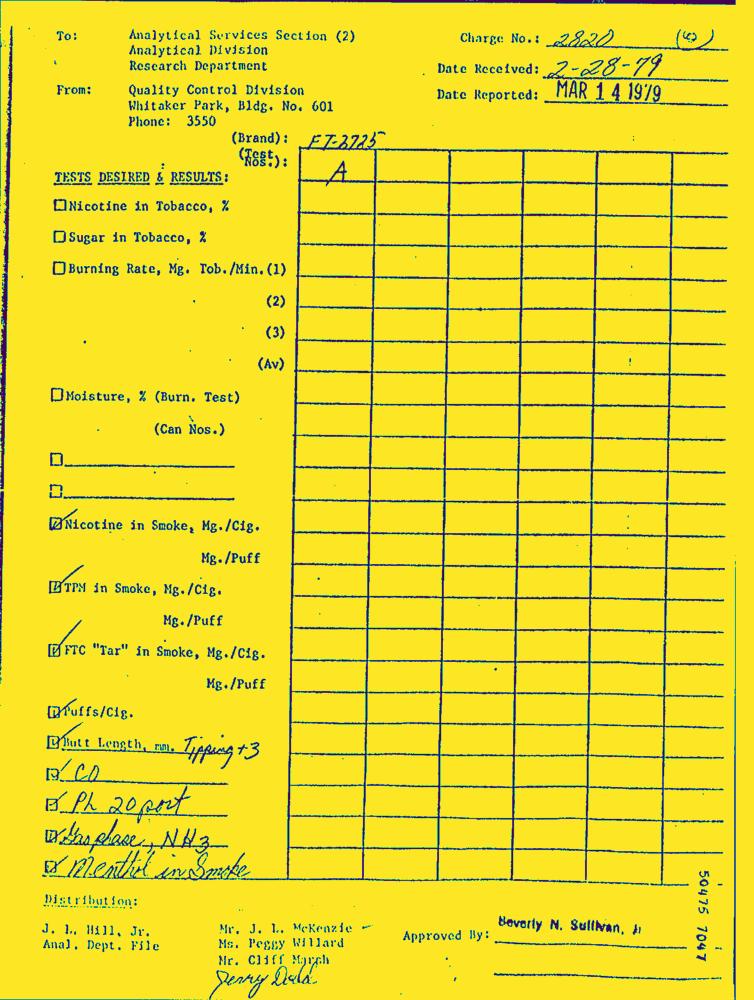 To: Analytical Services Section (2)
Analytical Division
Research Department
Charge No.: 2820 (W)
Date Received: 2-28-79
Date Reported: MAR 14 1979
From: Quality Control Division
Whitaker Park, Bldg. No. 601
Phone: 3550
(Brand): FT-2725
(Test Nos.): A
TESTS DESIRED & RESULTS:
Nicotine in Tobacco, %
Sugar in Tobacco, %
Burning Rate, Mg. Tob./Min.(1)
(2)
(3)
(Av)
Moisture, % (Burn. Test)
(Can Nos.)
Nicotine in Smoke, Mg./Cig.
Mg./Puff
TPM in Smoke, Mg./Cig.
Mg./Puff
FTC "Tar" in Smoke, Mg./Cig.
Mg./Puff
Puffs/Cig.
Butt Length, mm. Tipping +3
CO
Ph 20 port
Gas phase, NH3
Menthol in Smoke
Distribution:
J. L. Hill, Jr.
Anal. Dept. File
Mr. J. L. McKenzie
Ms. Peggy Willard
Mr. Cliff Marsh
Jerry
Approved By: Beverly N. Sullivan, Jr
50475 7047